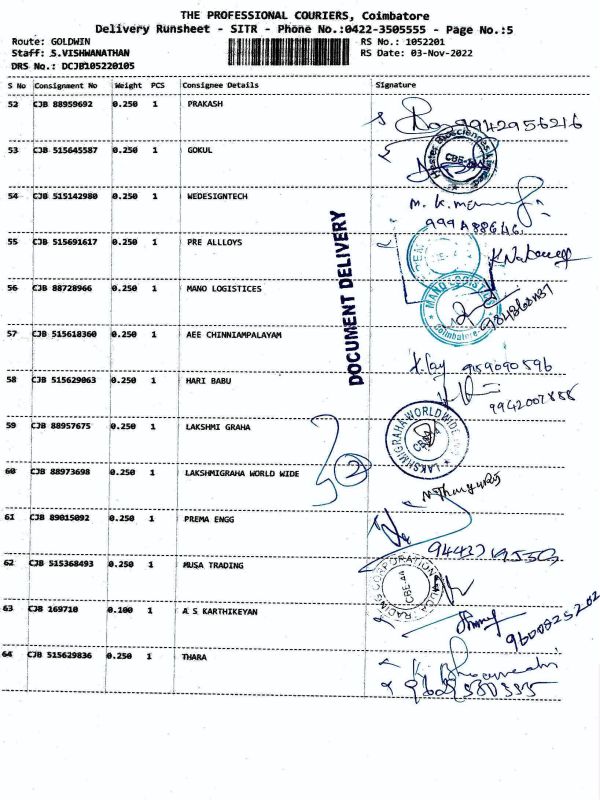 THE PROFESSIONAL COURIERS, Coimbatore
Delivery Runsheet - SITR - Phone No.:0422-3505555 - Page No.:5
Route: GOLDWIN RS No.: 1052201
Staff: S.VISHWANATHAN RS Date: 03-Nov-2022
DRS No.: DCJB105220105
S No Consignment No Weight PCS Consignee Details Signature
52 CJB 88959692 0.250 1 PRAKASH
9942956216
53 CJB 515645587 0.250 1 GOKUL
Hester Biosciences Limited
CBE-
54 CJB 515142980 0.250 1 WEDESIGNTECH
M. K.
55 CJB 515691617 0.250 1 PRE ALLLOYS
DOCUMENT DELIVERY
56 CJB 88728966 0.250 1 MANO LOGISTICES
MANO LOGISTICS
Coimbatore-
57 CJB 515618360 0.250 1 AEE CHINNIAMPALAYAM
9159090596
58 CJB 515629863 0.250 1 HARI BABU
59 CJB 88957675 0.250 1 LAKSHMI GRAHA
LAKSHMIGRAHA WORLDWIDE
CBE-44
60 CJB 88973698 0.250 1 LAKSHMIGRAHA WORLD WIDE
2
61 CJB 89015092 0.250 1 PREMA ENGG
62 CJB 515368493 0.250 1 MUSA TRADING
CORPORATION
CBE-44
63 CJB 169710 0.100 1 A S KARTHIKEYAN
9600825202
64 CJB 515629836 0.250 1 THARA